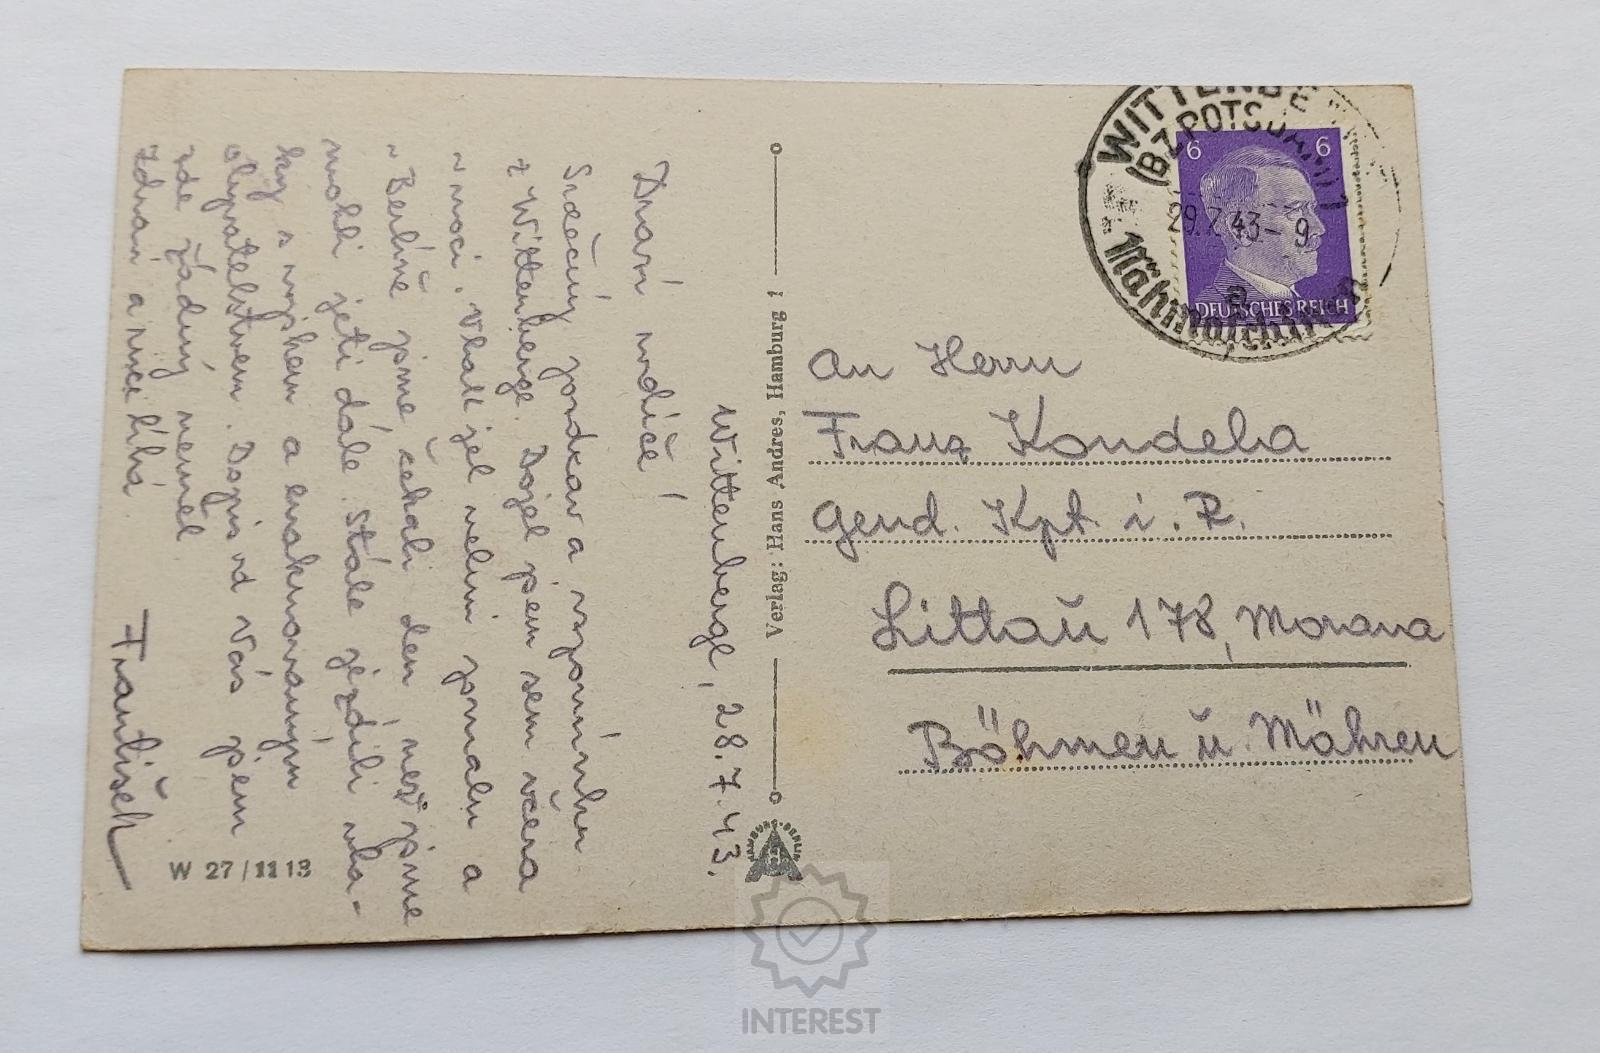 Wittenberge, 28.7.43.
Drazí rodiče!
Srdečný pozdrav a vzpomínku
z Wittenberge. Dojel jsem sem včera
v noci. Vlak jel velmi pomalu a
v Berlíně jsme čekali den, než jsme
mohli jeti dále. Stále jezdili vla-
ky s vojskem a evakuovaným
obyvatelstvem. Dopis od Vás jsem
zde žádný neměl.
Zdraví a ruce líbá
František
W 27/1113
Verlag: Hans Andres, Hamburg 1
HAMBURG-BERLIN
WITTENBE
(BZ. POTSDAM) 1
29.7.43- 9
a
Nähmaschinen
6 6
DEUTSCHES REICH
An Herrn
Franz Kondela
Gend. Kpt. i. R.
Littau 178, Morava
Böhmen ŭ. Mähren
INTEREST